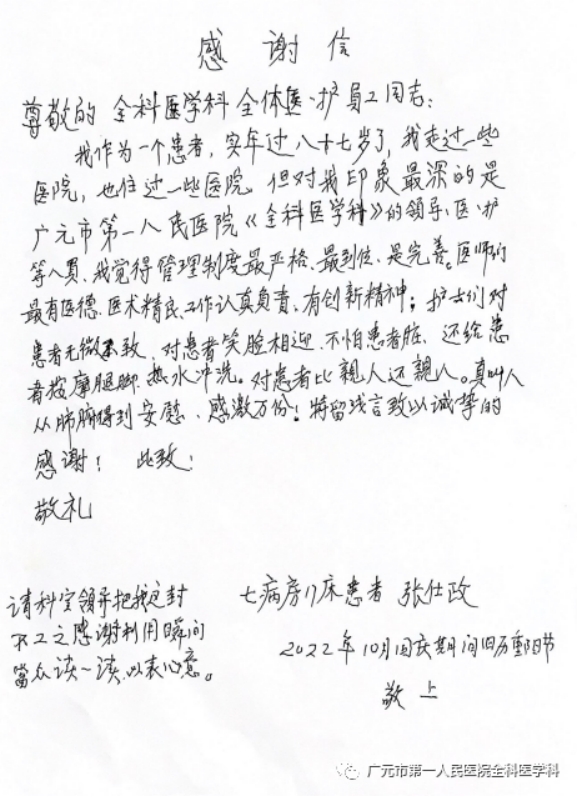 感谢信
尊敬的全科医学科全体医、护员工同志:
我作为一个患者,实年过八十七岁了,我走过一些
医院,也住过一些医院。但对我印象最深的是
广元市第一人民医院《全科医学科》的领导、医、护
等人员、我觉得管理制度最严格、最到位、是完善。医师们
最有医德、医术精良、工作认真负责、有创新精神;护士们对
患者无微不致、对患者笑脸相迎、不怕患者脏、还给患
者按摩腿脚、热水冲洗。对患者比親人还親人。真叫人
从肺腑得到安慰、感激万份!特留残言致以诚挚的
感谢! 此致:
敬礼
请科室领导把我这封
不工之感谢利用瞬间
當众读一读,以表心意。
七病房11床患者 张仕政
2022年10月国庆期间旧历重阳节
敬上
广元市第一人民医院全科医学科